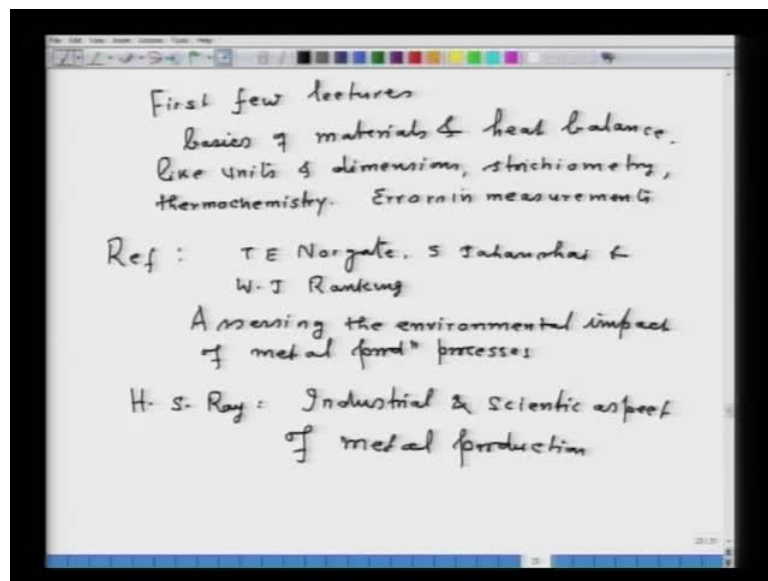 First few lectures
basics of materials & heat balance.
like units & dimension, stoichiometry,
thermochemistry. Errors in measurements
Ref : T E Norgate. S Jahanshai &
W. J Ranking
Assessing the environmental impact
of metal prodⁿ processes
H. S. Ray : Industrial & Scientic aspect
of metal production